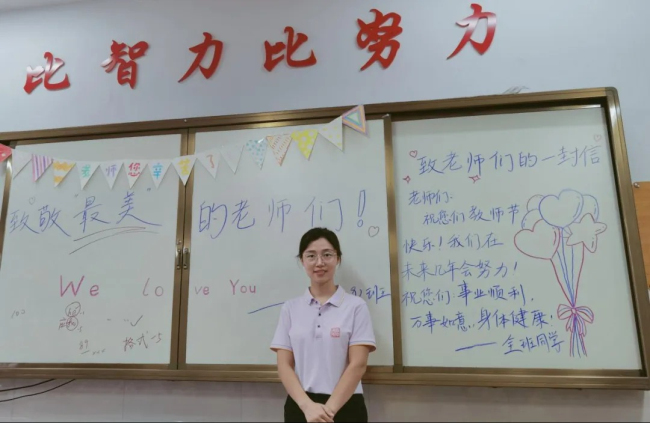 比智力比努力
老师您辛苦了
致敬"最美"的老师们!
We love You
班
格式士
致老师们的一封信
老师们:
祝您们教师节
快乐!我们在
未来几年会努力!
祝您们:事业顺利,
万事如意,身体健康!
——全班同学